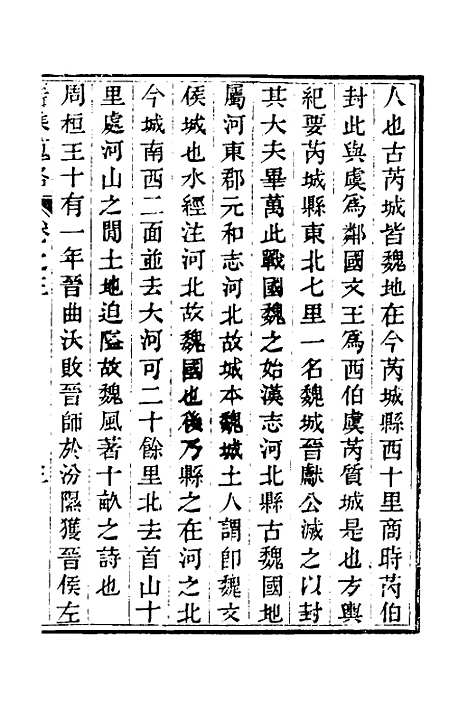 人也古芮城皆魏地在今芮城縣西十里商時芮伯
封此與虞爲鄰國文王爲西伯虞芮質城是也方輿
紀要芮城縣東北七里一名魏城晉獻公滅之以封
其大夫畢萬此戰國魏之始漢志河北縣古魏國地
屬河東郡元和志河北故城本魏城土人謂卽魏文
侯城也水經注河北故魏國也後乃縣之在河之北
今城南西二面並去大河可二十餘里北去首山十
里處河山之閒土地迫隘故魏風著十畝之詩也
周桓王十有一年晉曲沃敗晉師於汾隰獲晉侯左